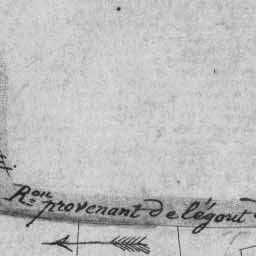 Ron provenant de l'égout